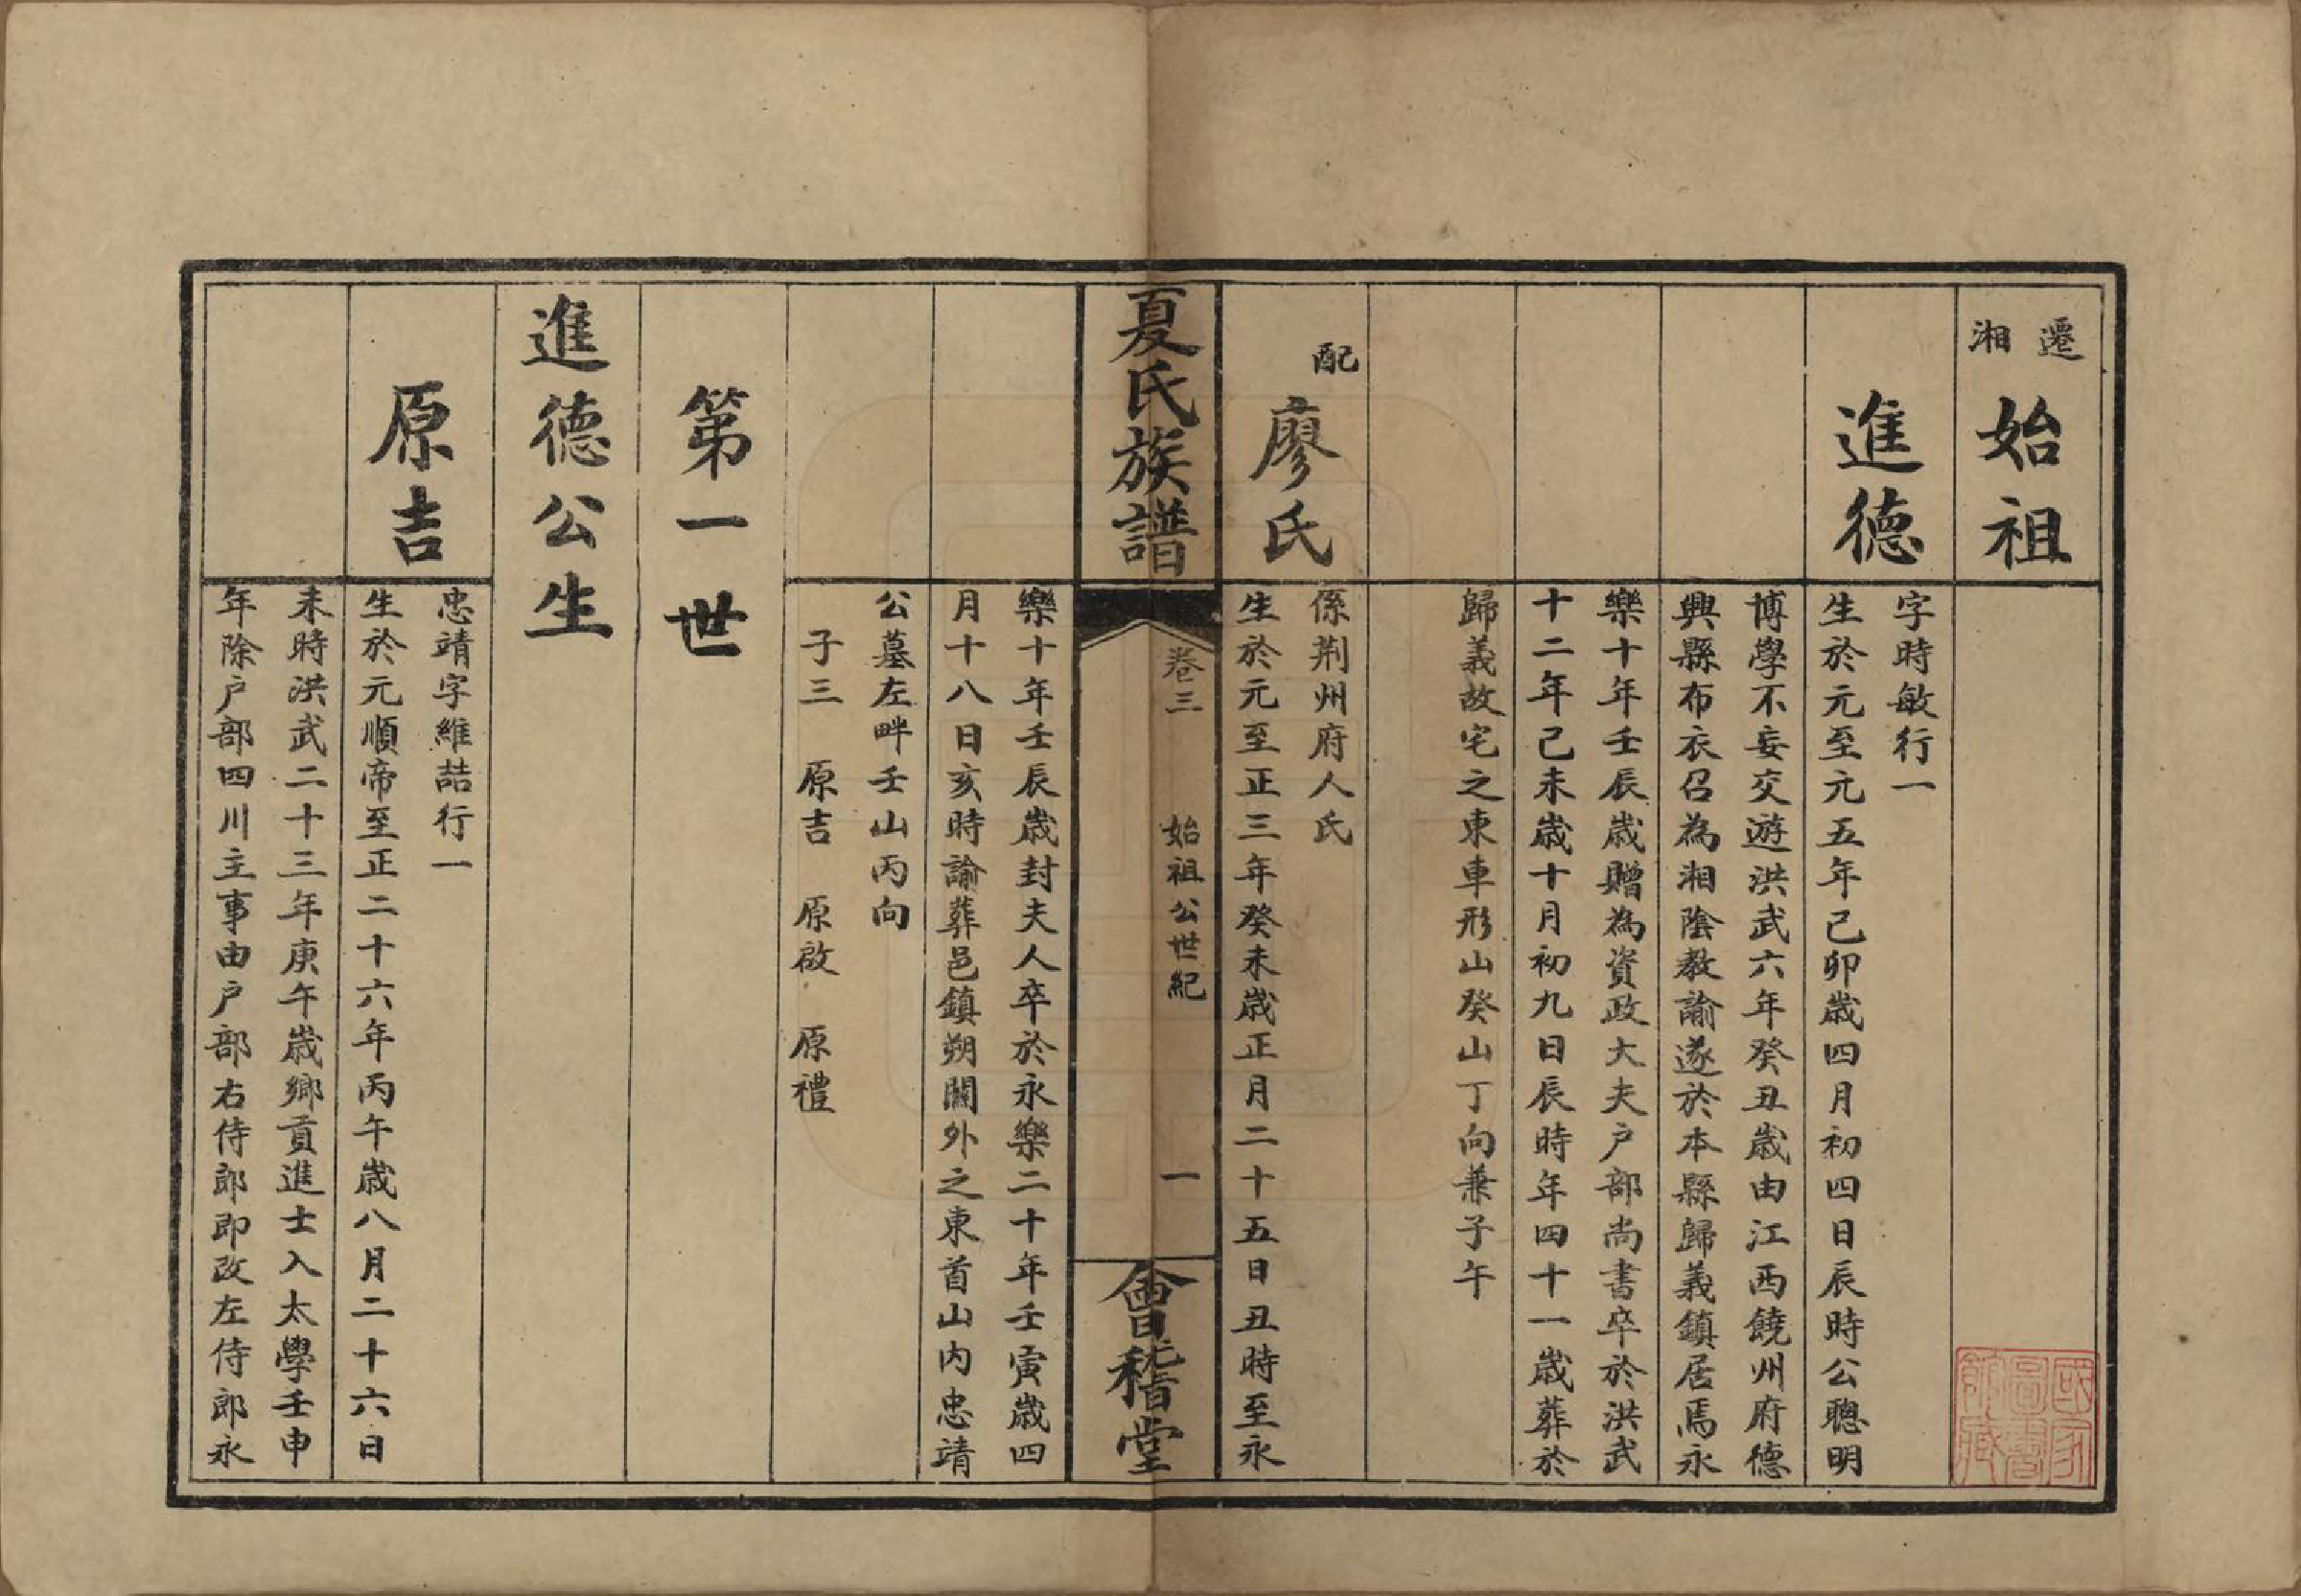 遷湘
始祖
進德
字時敏行一
生於元至元五年己卯歲四月初四日辰時公聰明
博學不妄交遊洪武六年癸丑歲由江西饒州府德
興縣布衣召為湘陰教諭遂於本縣歸義鎮居焉永
樂十年壬辰歲贈為資政大夫户部尚書卒於洪武
十二年己未歲十月初九日辰時年四十一歲葬於
歸義故宅之東車形山癸山丁向兼子午
配
廖氏
係荆州府人氏
生於元至正三年癸未歲正月二十五日丑時至永
夏氏族譜
卷三
始祖公世紀
一
會稽堂
樂十年壬辰歲封夫人卒於永樂二十年壬寅歲四
月十八日亥時諭葬邑鎮朔關外之東首山内忠靖
公墓左畔壬山丙向
子三 原吉 原啟 原禮
第一世
進德公生
原吉
忠靖字維喆行一
生於元順帝至正二十六年丙午歲八月二十六日
未時洪武二十三年庚午歲鄉貢進士入太學壬申
年除户部四川主事由户部右侍郎即改左侍郎永
國家
圖書
館藏